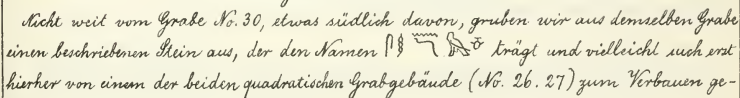 Nicht weit vom Grabe No. 30, etwas südlich davon, gruben wir aus demselben Grabe
einen beschriebenen Stein aus, der den Namen trägt und vielleicht auch erst
hierher von einem der beiden quadratischen Grabgebäude (No. 26. 27) zum Verbauen ge-